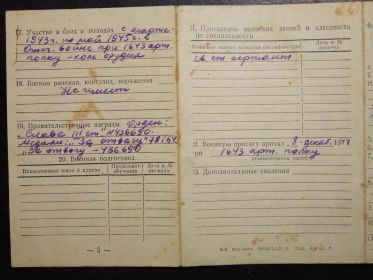 17. Участие в боях и походах с марта
1943г. по май 1945г. в
Отеч. войне при 1643 арт.
полку - ком. орудия
18. Военные ранения, контузии, поражения
Не имеет
19. Правительственные награды Орден:
"Слава III ст." №436650.
Медали: "За отвагу"
"За отвагу - 436650
20. Военная подготовка
Наименование школ и курсов
Продолжит. обучения
Дата и № приказа
— 5 —
21. Присвоение воинских званий и классности
по специальности
Воинские звания, классная квалификация
Дата и №
приказа
гв. ст. сержант
22. Военную присягу принял 2 декаб.
при 1643 арт. полку
(наименование части)
23. Дополнительные сведения